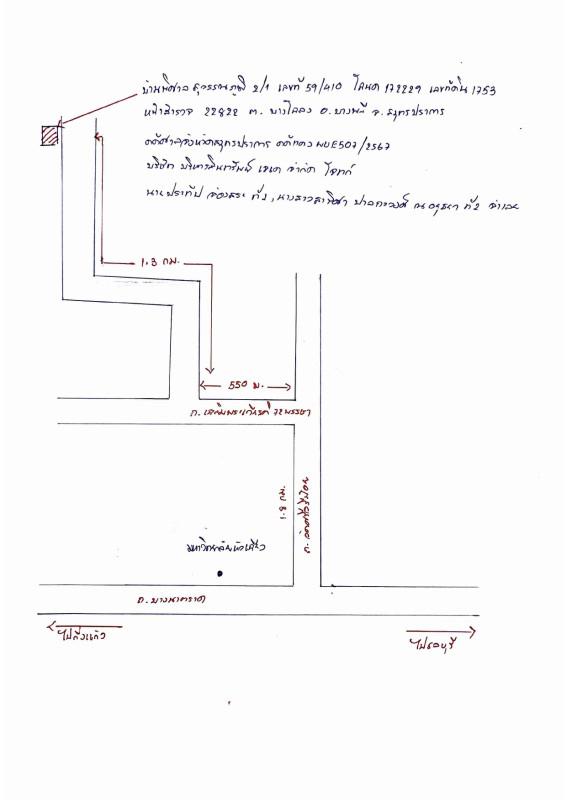 บ้านพิศาล สุวรรณภูมิ 2/1 เลขที่ 59/410 โฉนด 172229 เลขที่ดิน 1753
หน้าสำรวจ 22822 ต. บางโฉลง อ. บางพลี จ. สมุทรปราการ
คดีศาลจังหวัดสมุทรปราการ คดีแดง ผบE507/2567
บริษัท บริหารสินทรัพย์ เจเค จำกัด โจทก์
นายประทีป ที่ 1, นางสาว ณ อยุธยา ที่ 2 จำเลย
1.3 กม.
550 ม.
ถ. เฉลิมพระเกียรติ 72 พรรษา
1.8 กม.
ถ.
มหาวิทยาลัยหัวเฉียว
ถ. บางนาตราด
ไปกิ่งแก้ว
ไปชลบุรี